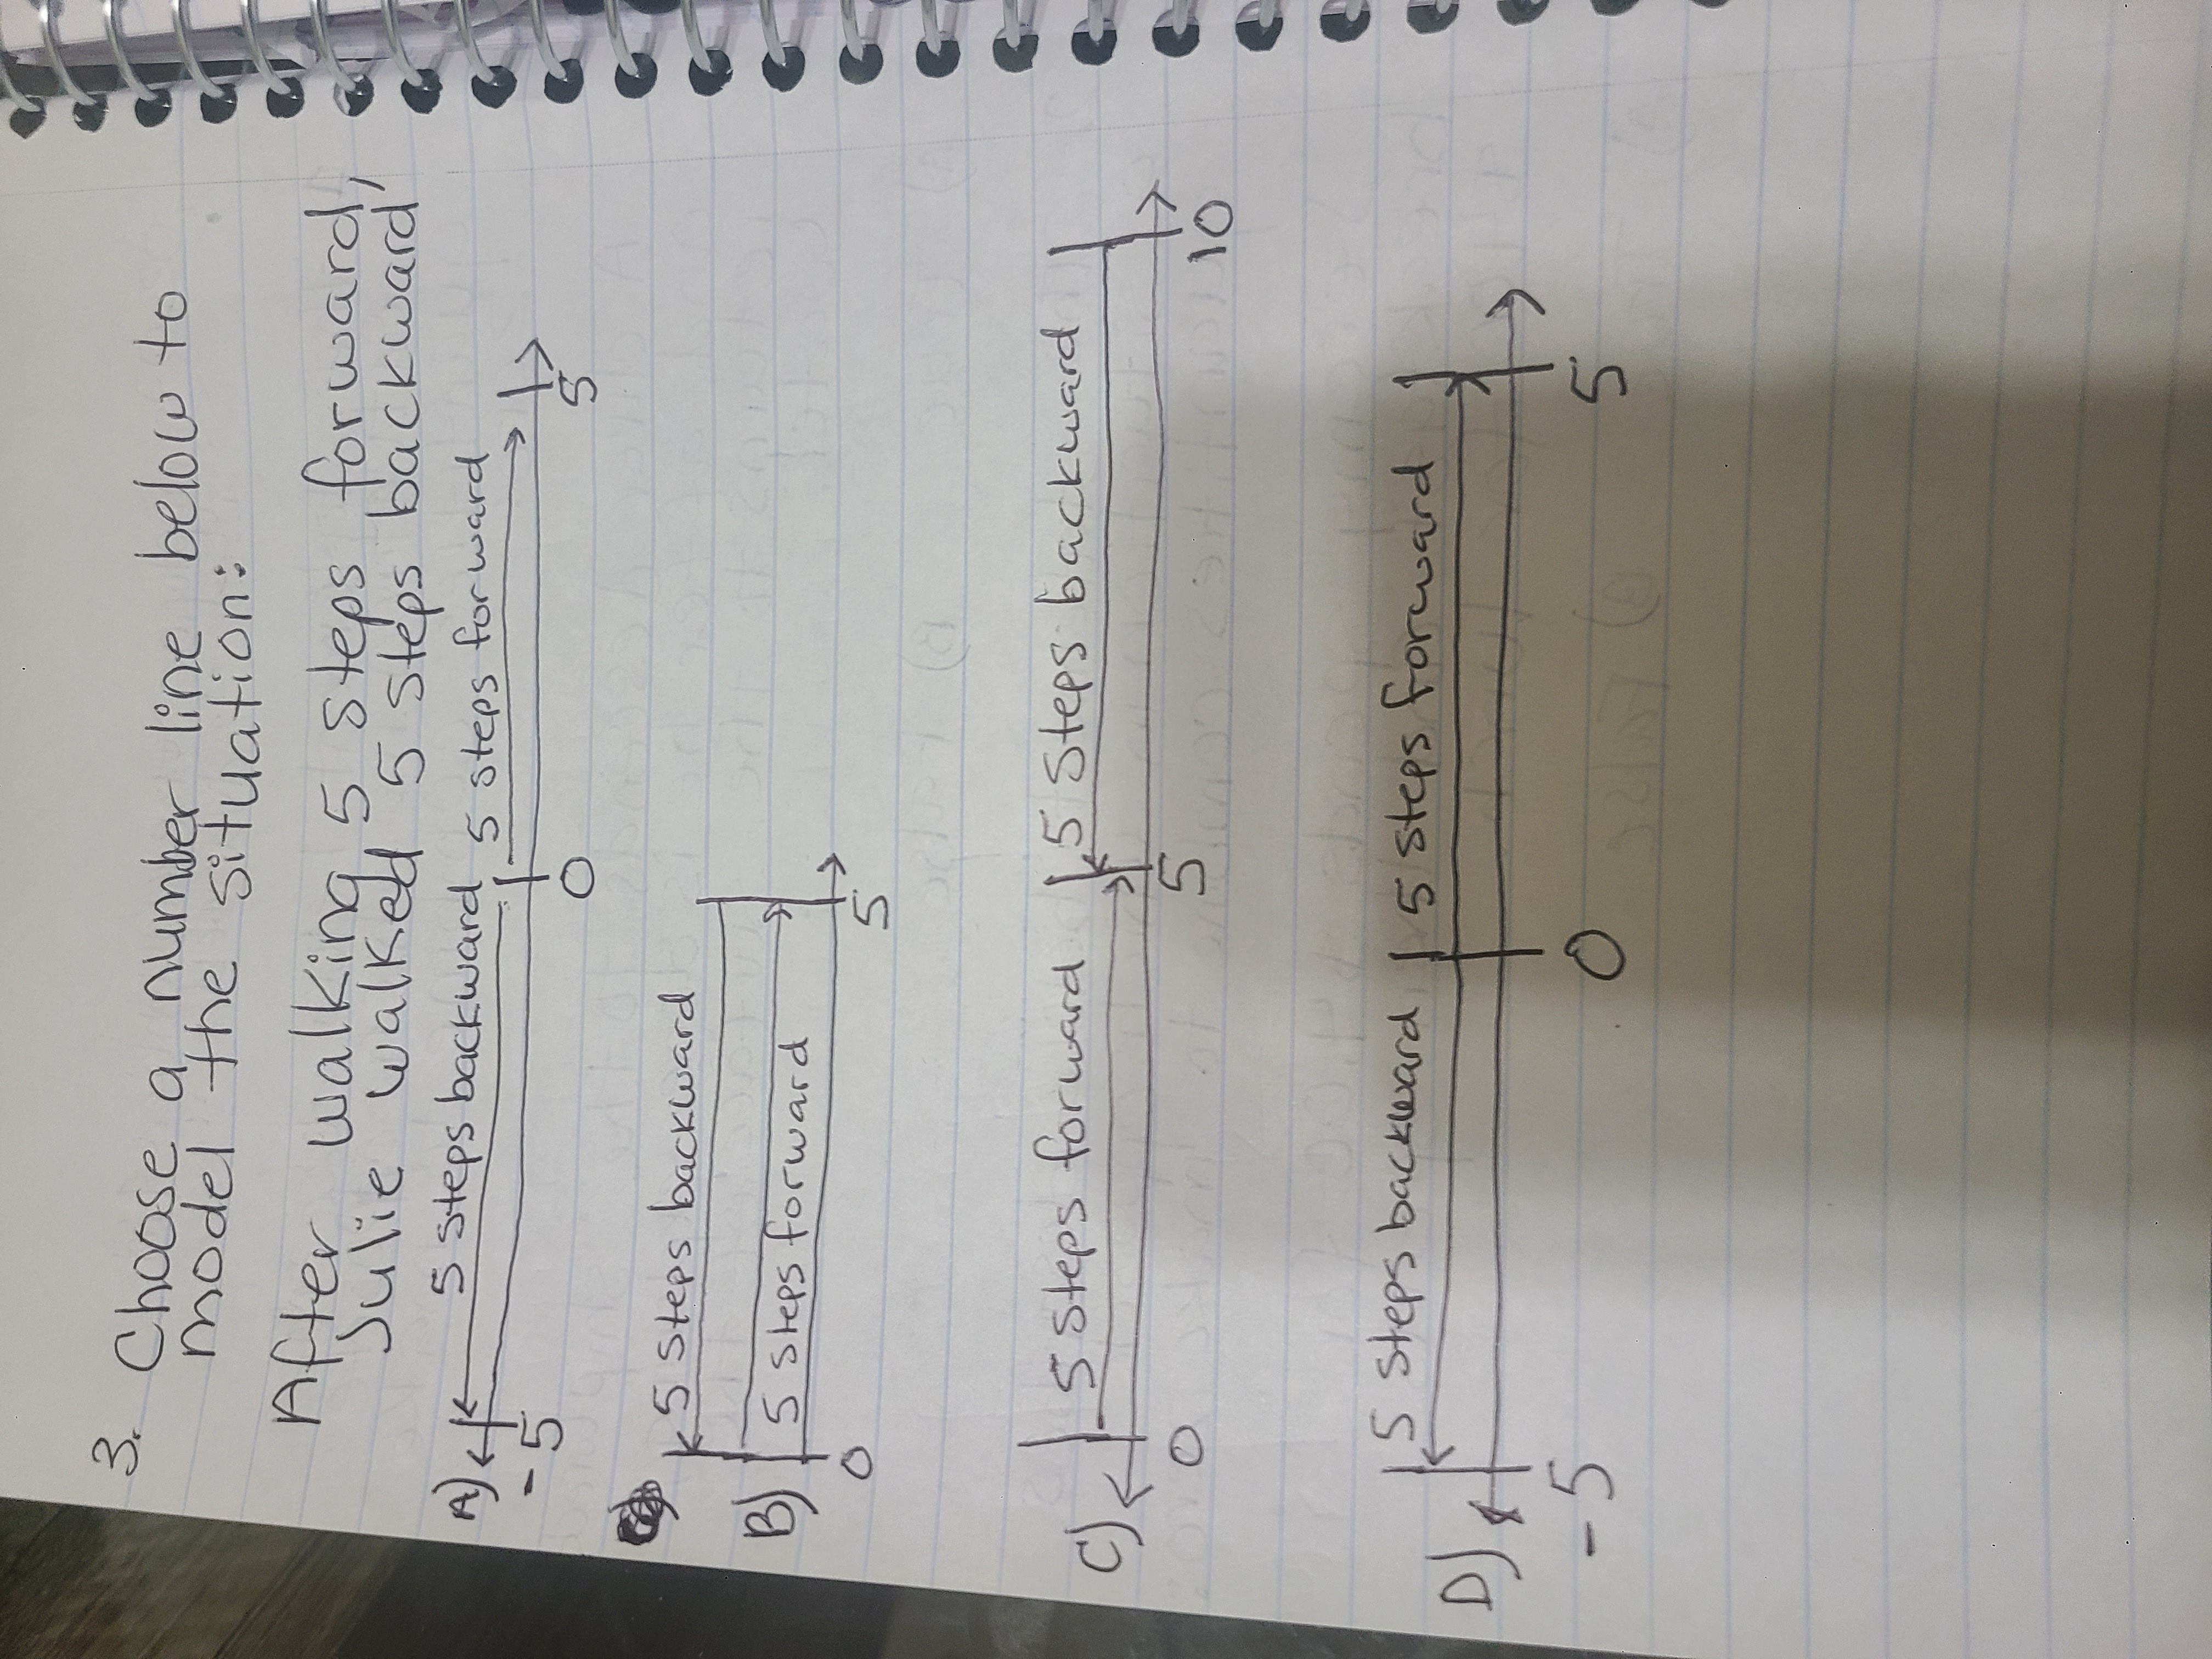 3. Choose a number line below to
model the situation:
After walking 5 steps forward,
Julie walked 5 steps backward
A) 5 steps backward 5 steps forward
-5 0 5
5 steps backward
B) 5 steps forward
0 5
C) 5 steps forward 5 Steps backward
0 5 10
D) 5 steps backward 5 steps forward
-5 0 5